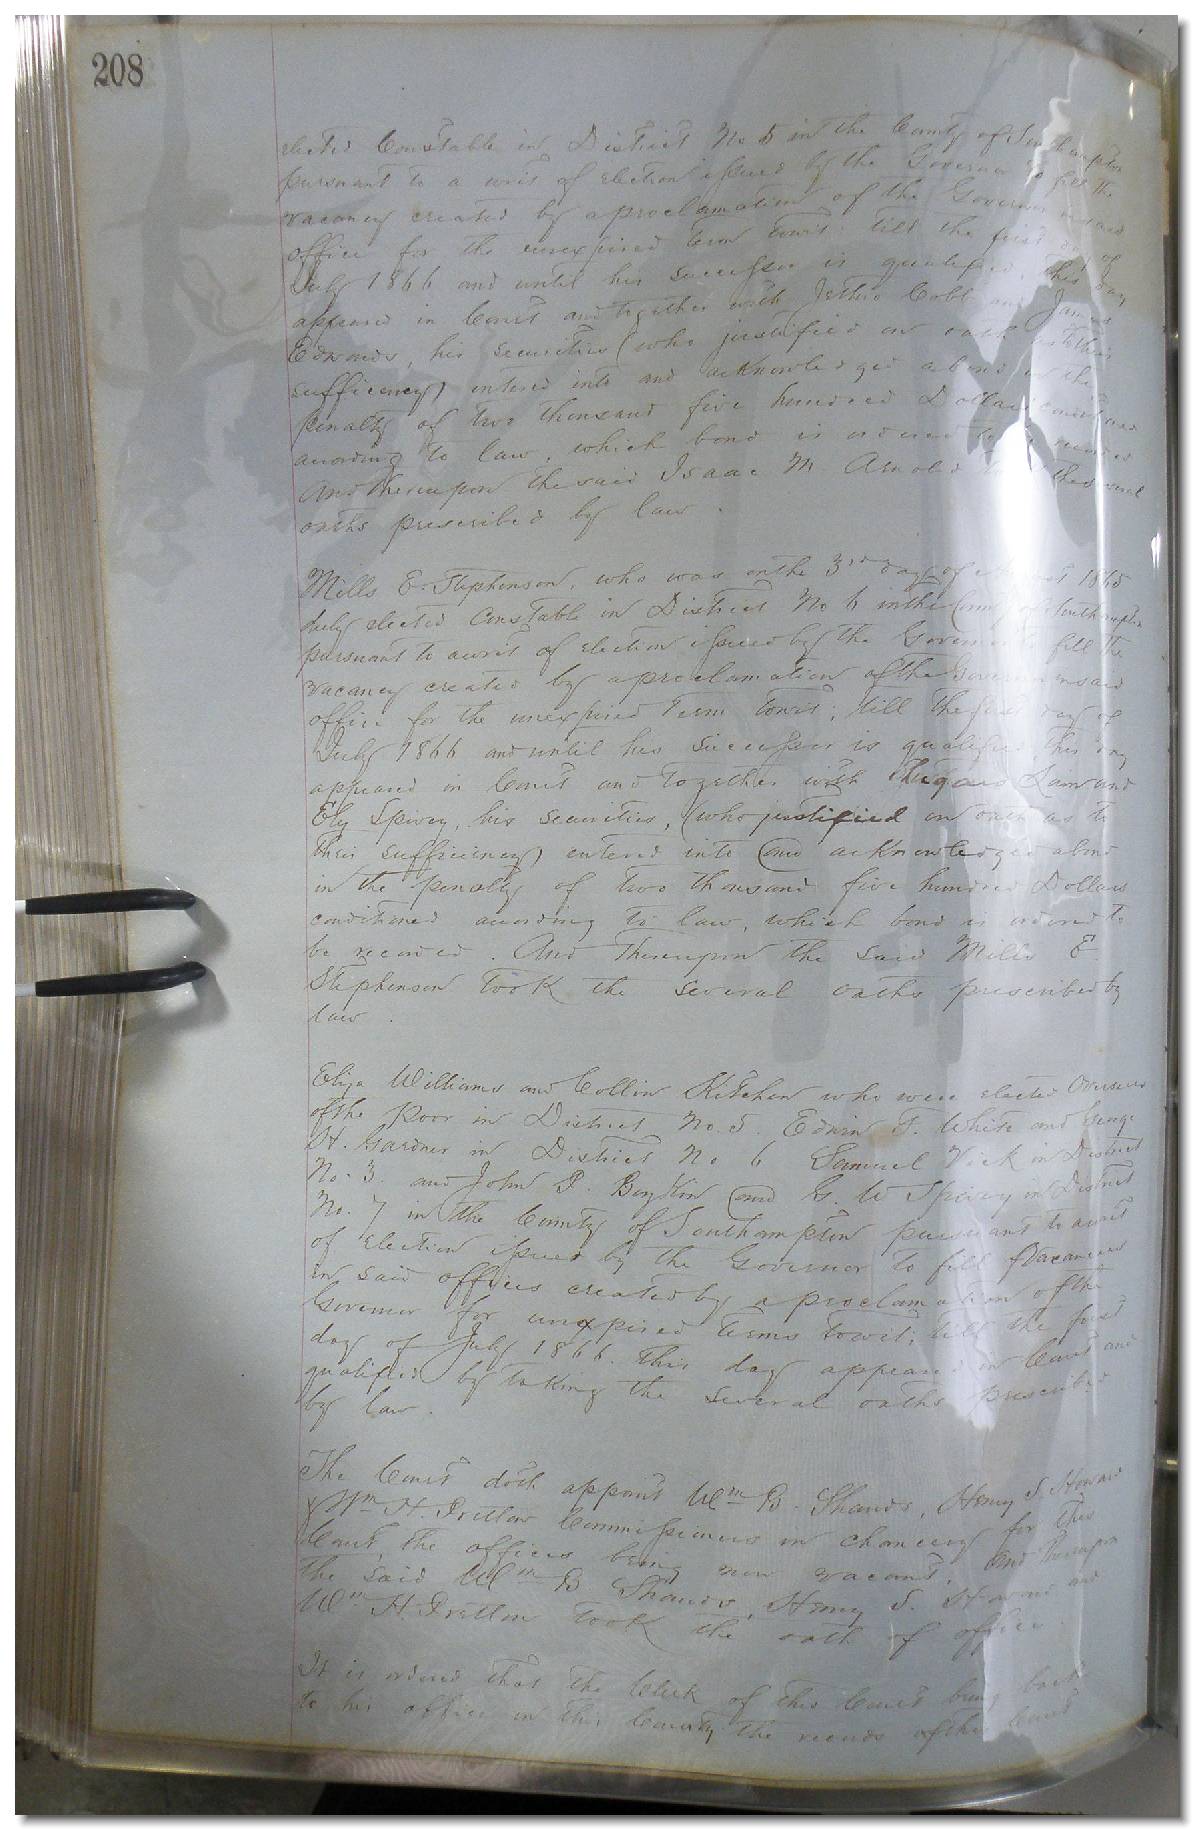 208
elected Constable in District No 5 in the County of Southampton
pursuant to a writ of election issued by the Governor to fill the
vacancy created by a proclamation of the Governor in said
office for the unexpired term towit: till the first day of
July 1866 and until his successor is qualified, this day
appeared in Court and together with Jethro Cobb and James
Edwards, his securities (who justified on oath as to their
sufficiency) entered into and acknowledged a bond in the
penalty of two thousand five hundred Dollars conditioned
according to law, which bond is ordered to be recorded
And thereupon the said Isaac M Arnold took the several
oaths prescribed by law.
Mills E. Stephenson, who was on the 3rd day of August 1865
duly elected Constable in District No 6 in the County of Southampton
pursuant to a writ of election issued by the Governor to fill the
vacancy created by a proclamation of the Governor in said
office for the unexpired term towit; till the first day of
July 1866 and until his successor is qualified this day
appeared in Court and together with Lain and
Ely Spivey, his securities, (who justified on oath as to
their sufficiency) entered into and acknowledged a bond
in the penalty of two thousand five hundred Dollars
conditioned according to law, which bond is ordered to
be recorded. And thereupon the said Mills E.
Stephenson took the several oaths prescribed by
law.
Eliza Williams and Collin Kitchen who were elected Overseers
of the Poor in District No. 5. Edwin F. White and George
H. Gardner in District No 6 Samuel Vick in District
No. 3. and John P. Boykin and G. W Spivey in District
No. 7 in the County of Southampton pursuant to a writ
of election issued by the Governor to fill vacancies
in said offices created by a proclamation of the
Governor for unexpired terms towit; till the first
day of July 1866. this day appeared in Court and
qualified by taking the several oaths prescribed
by law.
The Court doth appoint Wm B. Shands, Henry S. Howard
& Wm H. Pretlow Commissioners in chancery for this
Court, the offices being now vacant, and thereupon
the said Wm B Shands, Henry S. Howard and
Wm H. Pretlow took the oath of office.
It is ordered that the Clerk of this Court bring back
to his office in this County the records of the Court